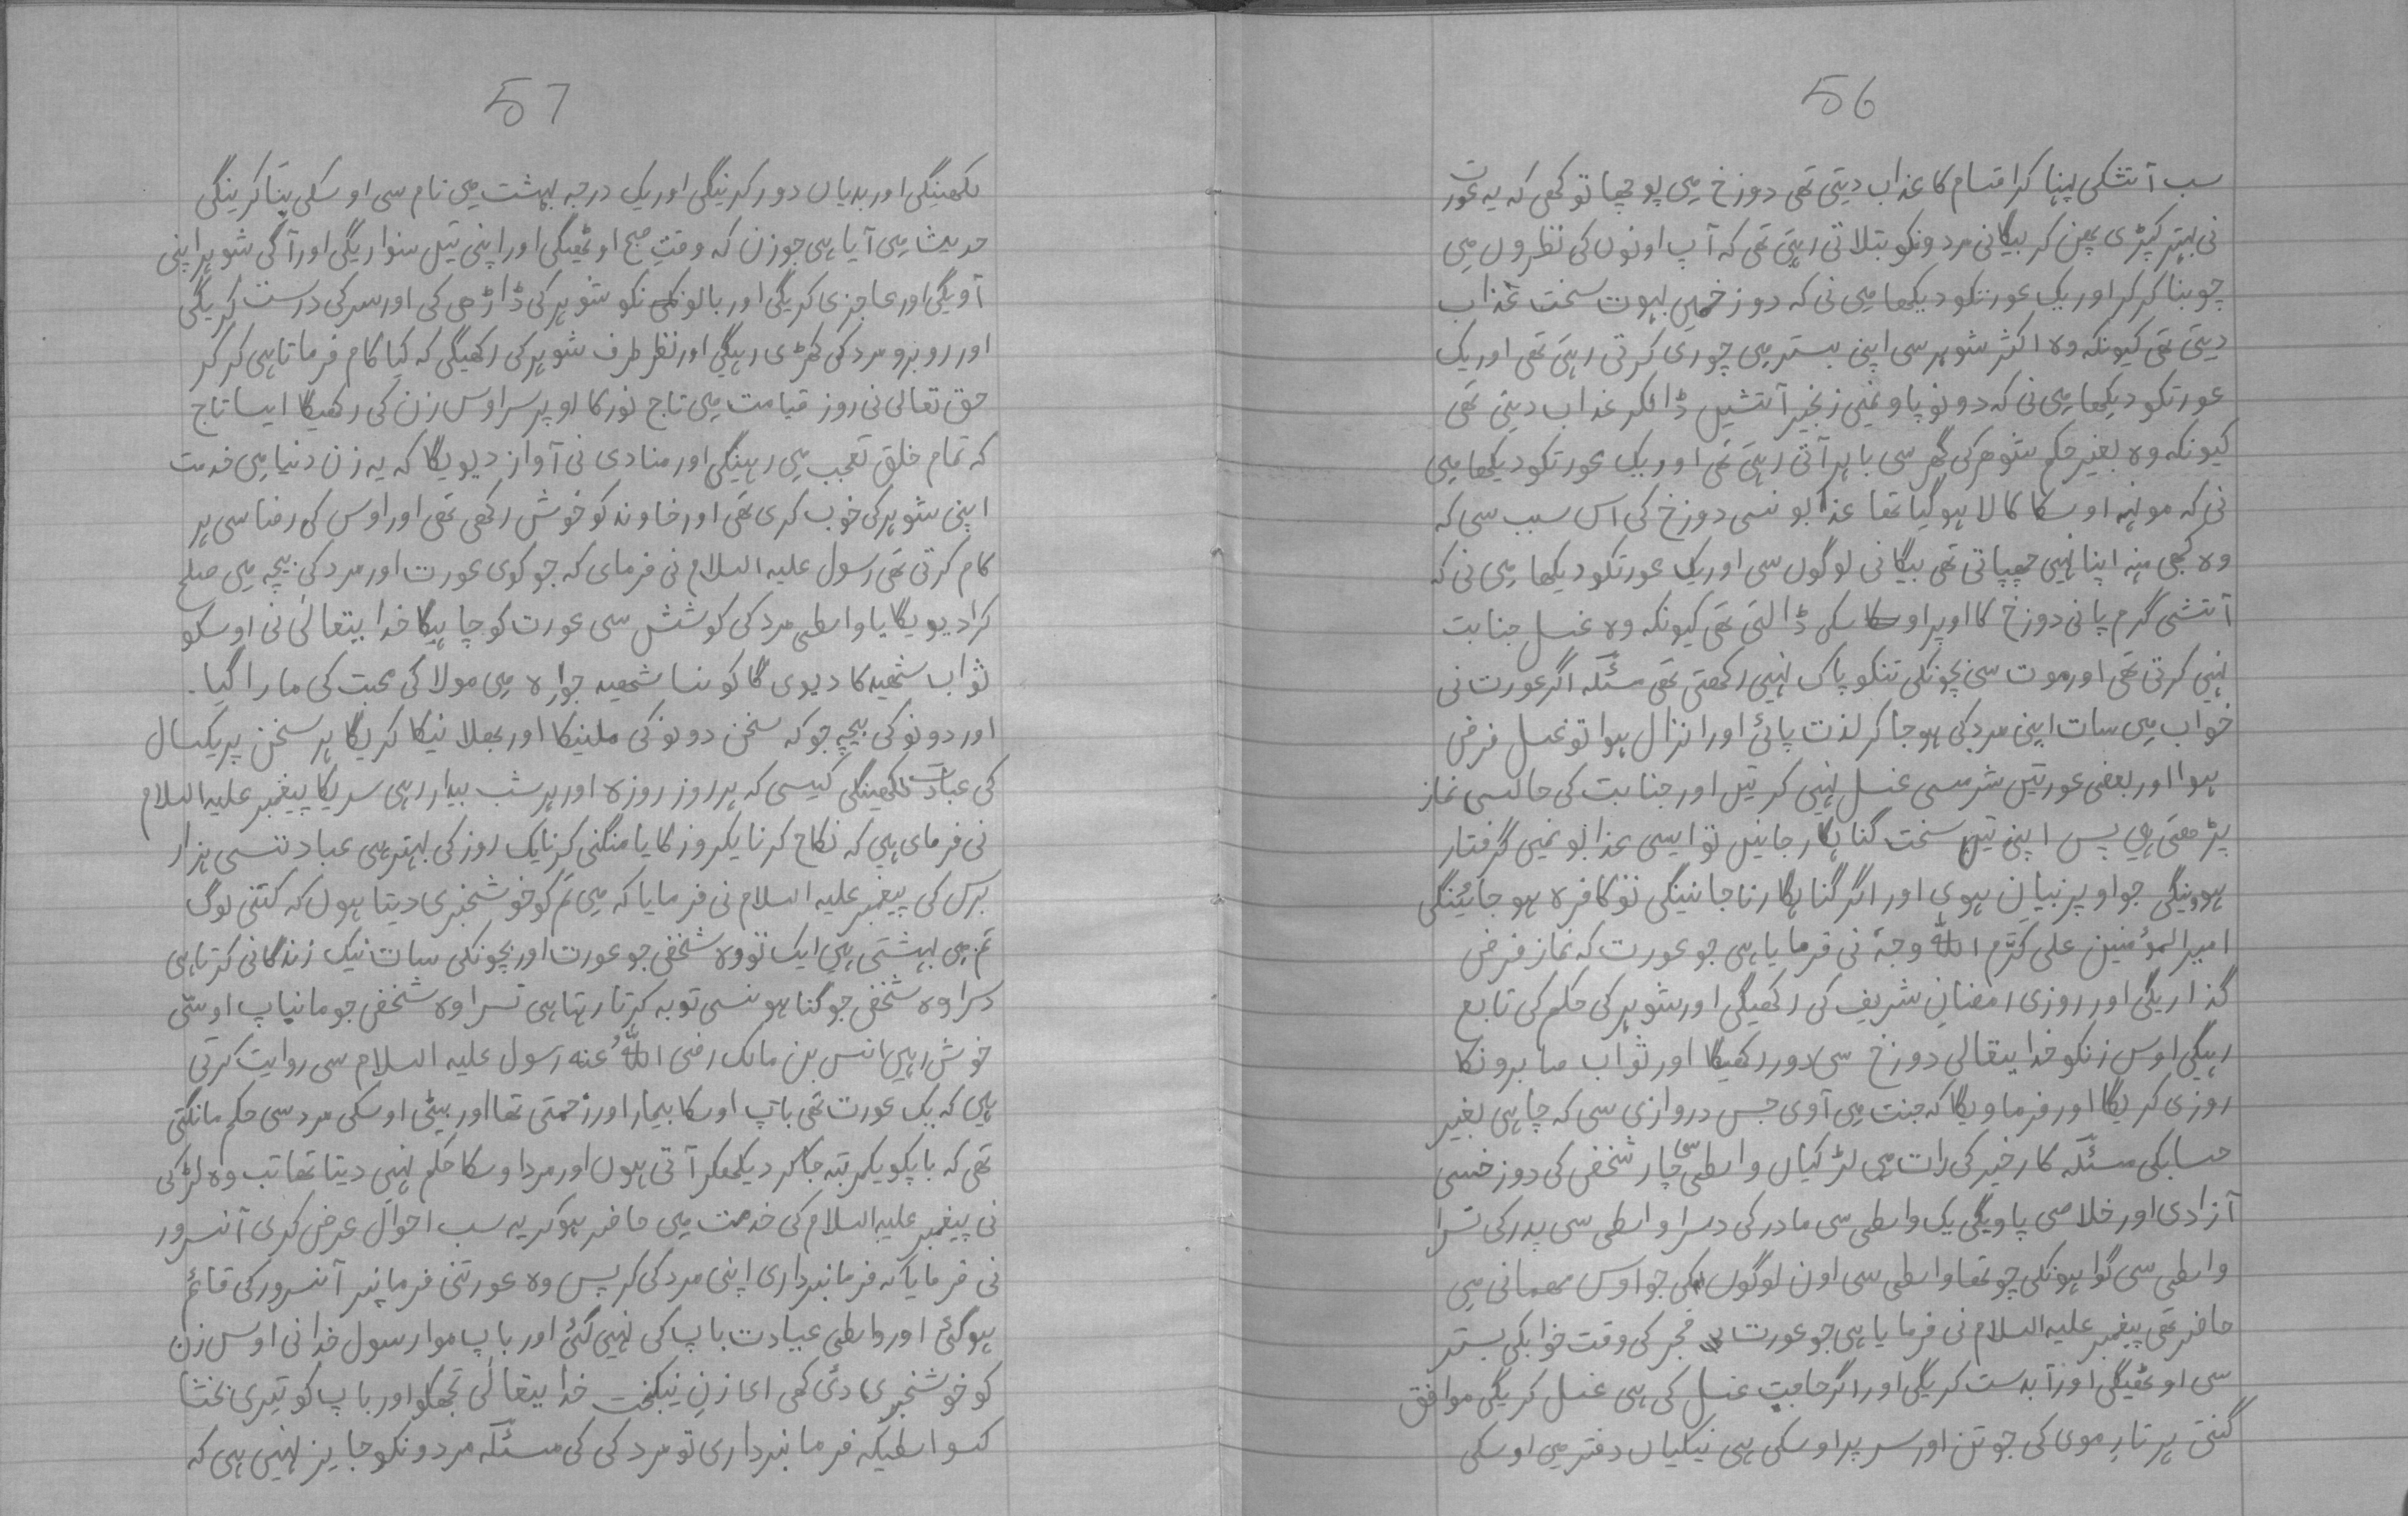 56
سب آتشکی پہنا کر اقسام کا عذاب دیتی تھی دوزخ میں پوچھا تو کھی کہ یہ عورت
نی بہتر کپڑی پہن کر بیگانی مردونکو بتلاتی رہتی تھی کہ آپ اونوں کی نظروں میں
چوبنا کر کر اور یک عورتکو دیکھا میں نی کہ دوزخمیں بہوت سخت عذاب
دیتی تھی کیونکہ وہ اکثر شوہر سی اپنی بستر میں چوری کرتی رہتی تھی اور یک
عورتکو دیکھا میں نی کہ دونو پاونمیں زنجیر آتشیں ڈالکر عذاب دیتی تھی
کیونکہ وہ بغیر حکم شوھر کی گھر سی باہر آتی رہتی تھی اور یک عورتکو دیکھا میں
نی کہ مونہہ اوسکا کالا ہوگیا تھا عذابونسی دوزخ کی اس سبب سی کہ
وہ کبھی منہ اپنا نہیں چھپاتی تھی بیگانی لوگوں سی اور یک عورتکو دیکھا میں نی کہ
آتشی گرم پانی دوزخ کا اوپر اوسکی ڈالتی تھی کیونکہ وہ غسل جنابت
نہیں کرتی تھی اور موت سی بچونکی تنکو پاک نہیں رکھتی تھی مسئلہ اگر عورت نی
خواب میں سات اپنی مرد کی ہوجا کر لذت پائی اور انزال ہوا تو غسل فرض
ہوا اور بعضی عورتیں شرمسی غسل نہیں کرتیں اور جنابت کی حالسی نماز
پڑھتی ہیں پس اپنی تیں سخت گناہگار جانیں تو ایسی عذابونمیں گرفتار
ہووینگی جو اوپر بیان ہوی اور اگر گناہگار نا جانینگی تو کافرہ ہو جائینگی
امیر المؤمنین علی کرّم اللہُ وجہ نی فرمایا ہی جو عورت کہ نماز فرض
گذاریگی اور روزی رمضان شریف کی رکھیگی اور شوہر کی حکم کی تابع
رہیگی اوس زنکو خدایتعالی دوزخ سی دور رکھیگا اور ثواب صابرونکا
روزی کریگا اور فرماویگا کہ جنت میں آوی جس دروازی سی کہ چاہی بغیر
حسابکی مسئلہ کارخیر کی رات میں لڑکیاں واسطی سی چار شخص کی دوزخسی
آزادی اور خلاصی پاویگی یک واسطی سی مادر کی دسرا واسطی سی پدر کی تسرا
واسطی سی گواہونکی چوتھا واسطی سی اون لوگوں کی جو اوس مھمانی میں
حاضر تھی پیغمبر علیہ السلام نی فرمایا ہی جو عورت فجر کی وقت خوابکی بستر
سی اوٹھیگی اور آبدست کریگی اور اگر حاجت غسل کی ہی غسل کریگی موافق
گنتی ہر تار موی کی جو تن اور سر پر اوسکی ہی نیکیاں دفتر میں اوسکی
57
لکھینگی اور بدیاں دور کرینگی اور یک درجہ بہشت میں نام سی اوسکی بنا کرینگی
حدیث میں آیا ہی جو زن کہ وقت صبح اوٹھیگی اور اپنی تیں سنواریگی اور آگی شوہر اپنی
آویگی اور عاجزی کریگی اور بالونکو شوہر کی ڈاڑھی کی اور سر کی درست کریگی
اور روبرو مرد کی کھڑی رہیگی اور نظر طرف شوہر کی رکھیگی کہ کیا کام فرماتا ہی کر کر
حق تعالی نی روز قیامت میں تاج نور کا اوپر سر اوس زن کی رکھیگا ایسا تاج
کہ تمام خلق تعجب میں رہینگی اور منادی نی آواز دیویگا کہ یہ زن دنیا میں خدمت
اپنی شوہر کی خوب کری تھی اور خاوند کو خوش رکھی تھی اور اوس کی رضا سی ہر
کام کرتی تھی رسول علیہ السلام نی فرمای کہ جو کوی عورت اور مرد کی بیچہ میں صلح
کرادیویگا یا واسطی مرد کی کوشش سی عورت کو چاہیگا خدایتعالٰی نی اوسکو
ثواب شھید کا دیوی گا کونسا شھید جو راہ میں مولا کی محبت کی مارا گیا۔
اور دونو کی بیچہ جو کہ سخن دونو کی ملنیکا اور بھلا نیکا کریگا ہر سخن پر یکسال
کی عبادت لکھینگی کیسی کہ ہر روز روزہ اور ہر شب بیدار رہی سریکا پیغمبر علیہ السلام
نی فرمای ہی کہ نکاح کرنا یکروز کا یا منگنی کرنا یک روز کی بہتر ہی عبادتسی ہزار
برس کی پیغمبر علیہ السلام نی فرمایا کہ میں تم کو خوشخبری دیتا ہوں کہ کتنی لوگ
تم میں بہشتی ہیں ایک تو وہ شخص جو عورت اور بچونکی سات نیک زندگانی کرتا ہی
دسرا وہ شخص جو گناہونسی توبہ کرتا رہتا ہی تسرا وہ شخص جو مانباپ اوسی
خوش رہیں انس بن مالک رضی اللہُ عنہ رسول علیہ السلام سی روایت کرتی
ہیں کہ یک عورت تھی باپ اوسکا بیمار اور زحمتی تھا اور بیٹی اوسکی مرد سی حکم مانگتی
تھی کہ باپکو یکمرتبہ جاکر دیکھکر آتی ہوں اور مرد اوسکا حکم نہیں دیتا تھا تب وہ لڑکی
نی پیغمبر علیہ السلام کی خدمت میں حاضر ہوکر یہ سب احوال عرض کری آنسرور
نی فرمایا کہ فرمانبرداری اپنی مرد کی کر پس وہ عورتنی فرماں پر آنسرور کی قائم
ہوگئی اور واسطی عیادت باپ کی نہیں گئی اور باپ موا رسول خدا نی اوس زن
کو خوشخبری دی کھی ای زنِ نیکبخت خدایتعالٰی تجھکو اور باپ کو تیری بخشا
کسواسطیکہ فرمانبرداری تو مرد کی کی مسئلہ مردونکو جایز نہیں ہی کہ